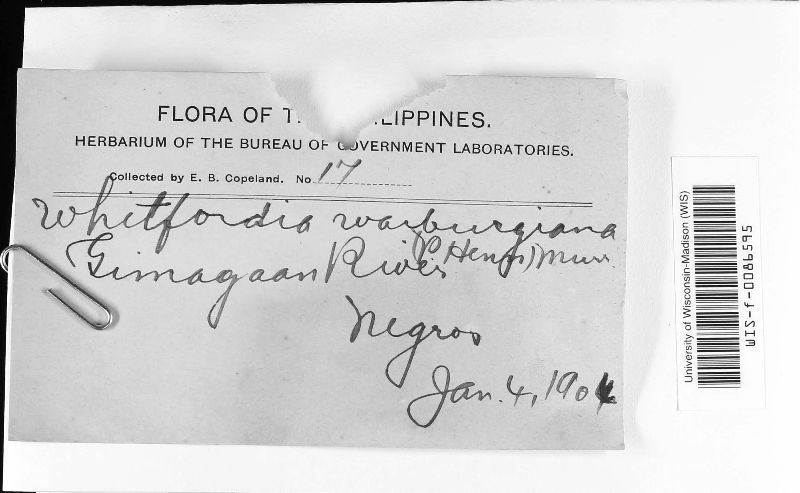 FLORA OF T. LIPPINES.
HERBARIUM OF THE BUREAU OF GOVERNMENT LABORATORIES.
Collected by E. B. Copeland. No. 17
Whitfordia warburgiana
(P. Henn) Murr.
Gimagaan River
Negros
Jan. 4, 1904
University of Wisconsin-Madison (WIS)
WIS-f-0086595